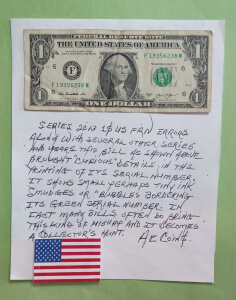 FEDERAL RESERVE NOTE
THE UNITED STATES OF AMERICA
F 19356230 N
F
F 19356230 N
ONE DOLLAR
SERIES 2013 1$ US FRN ERRORS
ALONG WITH SEVERAL OTHER SERIES
AND YEARS THIS BILL AS SHOWN ABOVE
BROUGHT "CURIOUS" DETAILS IN THE
PRINTING OF ITS SERIAL NUMBER.
IT SHOWS SMALL PERHAPS TINY INK
SMUDGES OR "BUBBLES" BORDERING
ITS GREEN SERIAL NUMBER. IN
FACT MANY BILLS OFTEN DO BRING
THIS KING OF MISHAP AND IT BECOMES
A COLLECTOR'S HUNT.